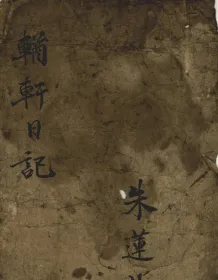 輶軒日記
朱蓮